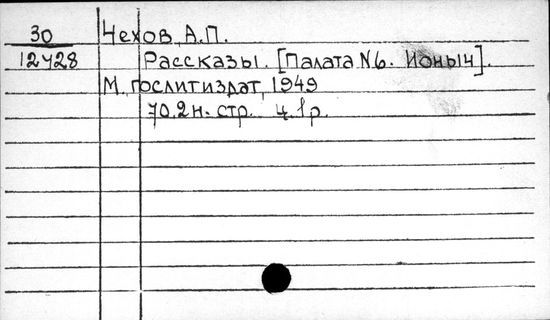 30 Чехов А.П.
12428 Рассказы. [Палата N6. Ионыч].
М. Гослитиздат, 1949
70.2н. стр. ц. 1р.